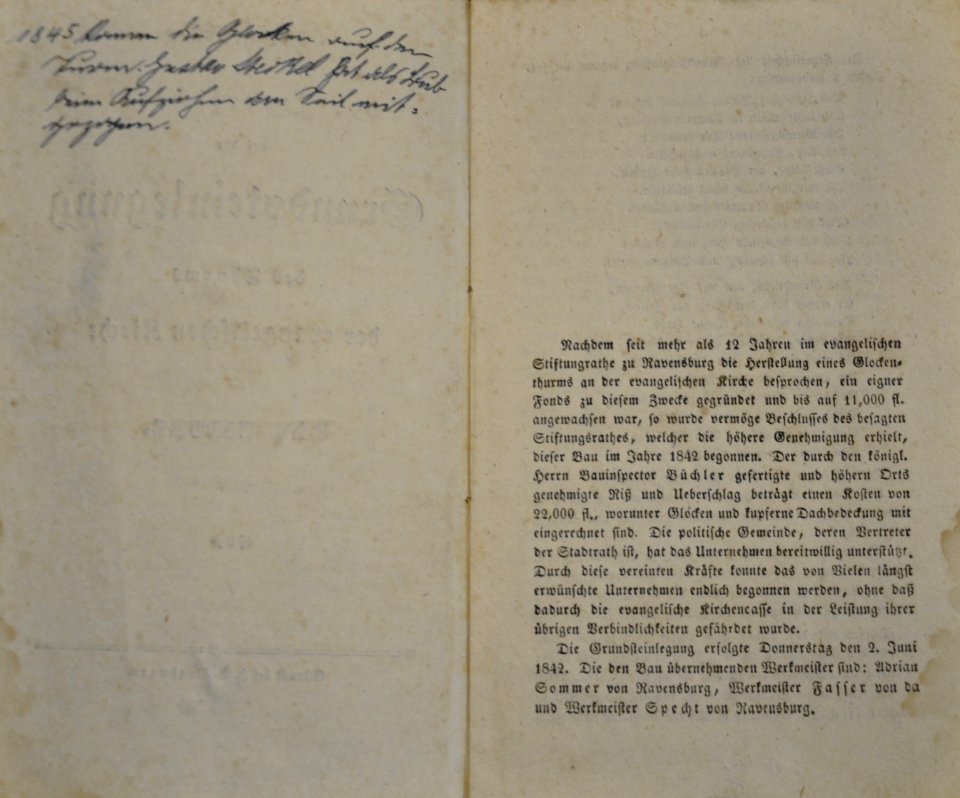 1845 kamen die Glocken auf den
Turm. Gustav Merkel hat als Bub
beim Aufziehen am Seil mit-
gezogen.
Grundsteinlegung
der evangelischen Kirche
Nachdem seit mehr als 12 Jahren im evangelischen
Stiftungrathe zu Ravensburg die Herstellung eines Glocken-
thurms an der evangelischen Kirche besprochen, ein eigner
Fonds zu diesem Zwecke gegründet und bis auf 11,000 fl.
angewachsen war, so wurde vermöge Beschlusses des besagten
Stiftungsrathes, welcher die höhere Genehmigung erhielt,
dieser Bau im Jahre 1842 begonnen. Der durch den königl.
Herrn Bauinspector Büchler gefertigte und höhern Orts
genehmigte Riß und Ueberschlag beträgt einen Kosten von
22,000 fl., worunter Glocken und kupferne Dachbedeckung mit
eingerechnet sind. Die politische Gemeinde, deren Vertreter
der Stadtrath ist, hat das Unternehmen bereitwillig unterstützt.
Durch diese vereinten Kräfte konnte das von Vielen längst
erwünschte Unternehmen endlich begonnen werden, ohne daß
dadurch die evangelische Kirchencasse in der Leistung ihrer
übrigen Verbindlichkeiten gefährdet wurde.
Die Grundsteinlegung erfolgte Donnerstag den 2. Juni
1842. Die den Bau übernehmenden Werkmeister sind: Adrian
Sommer von Ravensburg, Werkmeister Fasser von da
und Werkmeister Specht von Ravensburg.